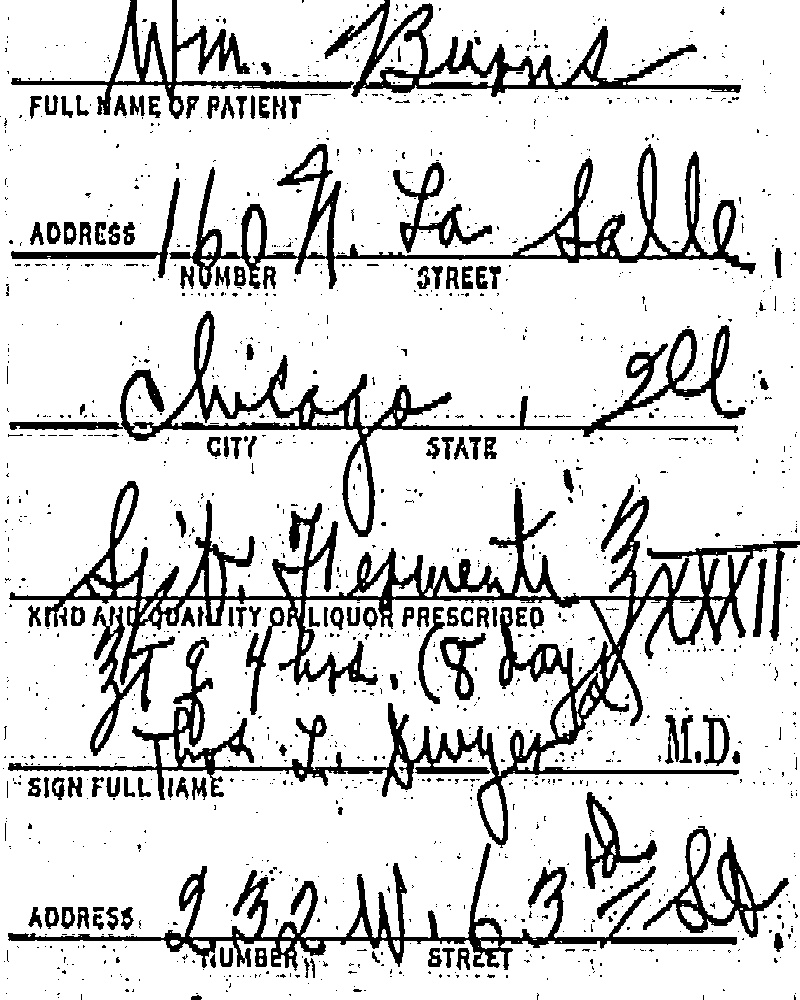 Wm. Burns
FULL NAME OF PATIENT
ADDRESS 160 N. La Salle,
NUMBER STREET
Chicago, Ill.
CITY STATE
Spt. Frumenti ℥ XXXII
KIND AND QUANTITY OF LIQUOR PRESCRIBED
℥ī q 4 hrs. (8 days)
Thos L. Dwyer M.D.
SIGN FULL NAME
ADDRESS 232 W. 63rd St.
NUMBER STREET